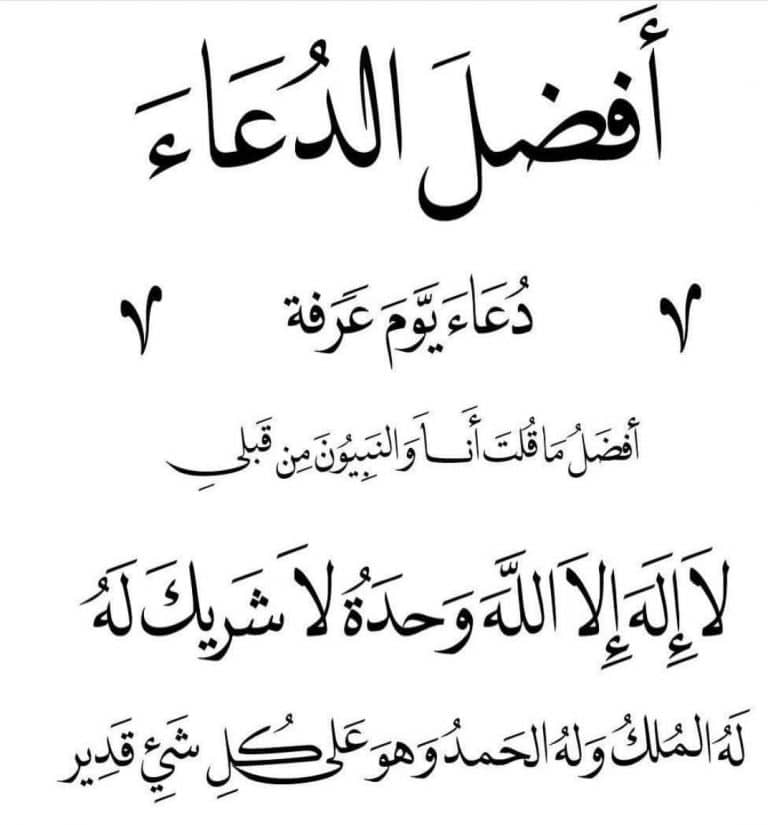 أَفضلَ الدُعَاءَ
دُعَاءَ يَّوْمَ عَرَفة
أفضَلُ مَا قُلتَ أَنــاَ وَالنَبِيُونَ مِن قَبلىِ
لاَ إِلَهَ إِلاَ اللَّهَ وَحدَةُ لاَ شَرِيكَ لَهُ
لَهُ المُلكُ وَلهُ الحَمدُ وَهوَ عَلى كُلِ شَئٍ قَدِير